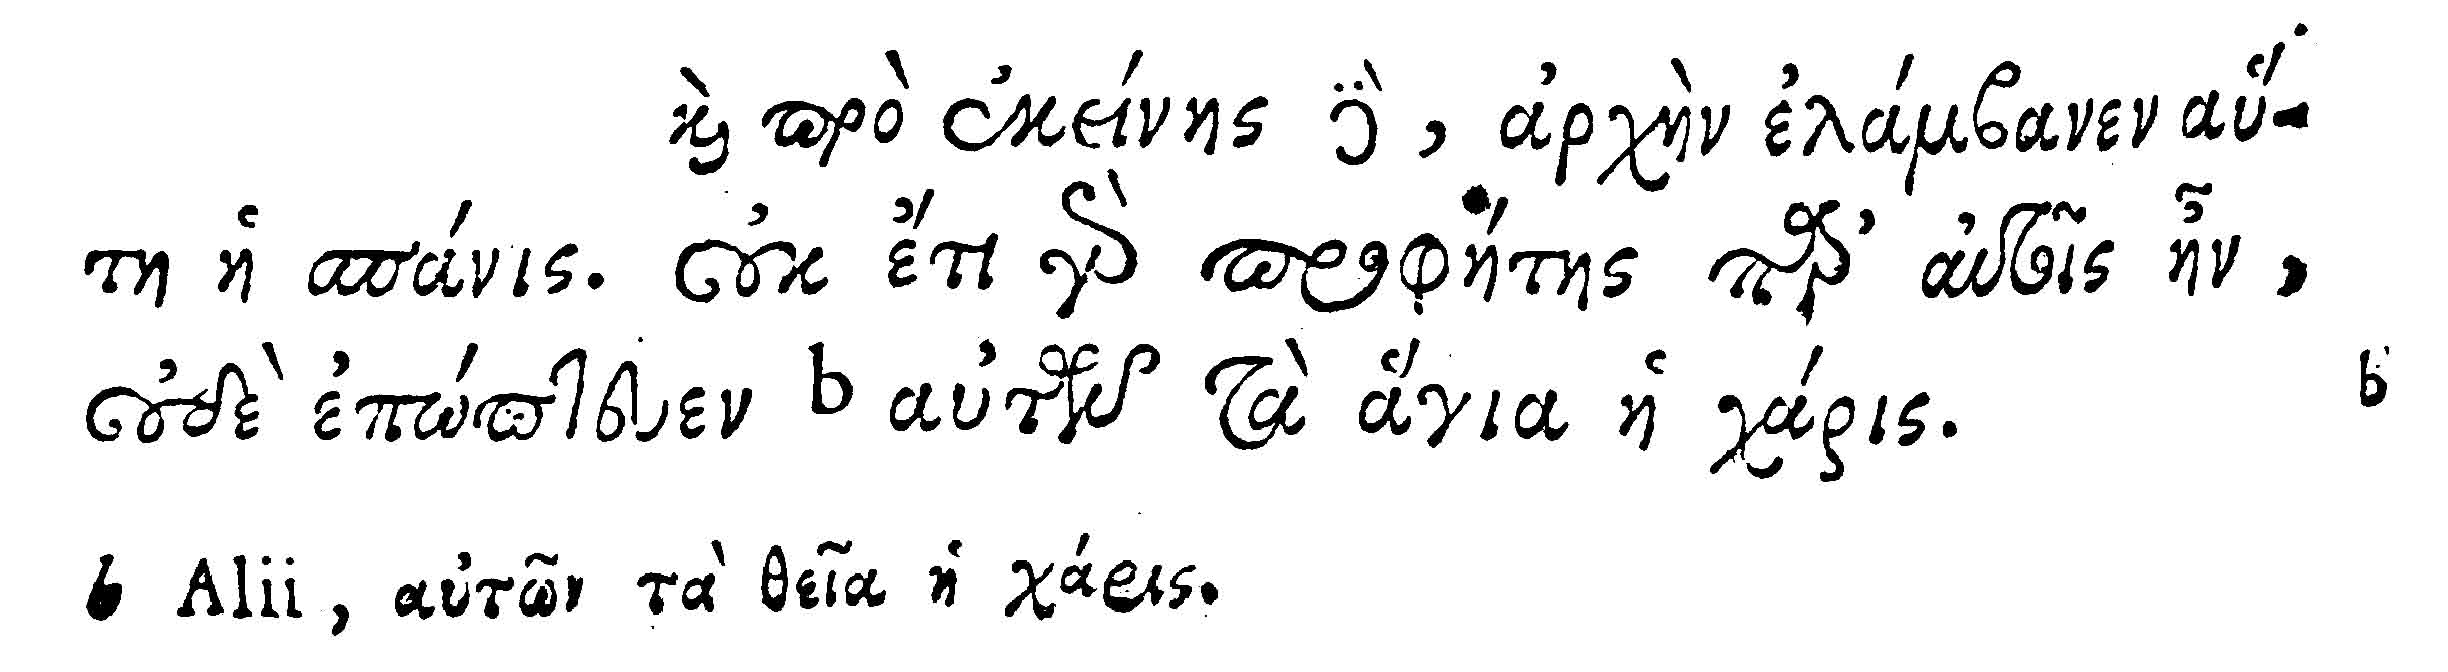 καὶ πρὸ ἐκείνης δὲ, ἀρχὴν ἐλάμβανεν αὕ-
τη ἡ σπάνις. οὐκ ἔτι γὰρ προφήτης παρ' αὐτοῖς ἦν,
οὐδὲ ἐπώπτευεν b αὐτῶν τὰ ἅγια ἡ χάρις. b
b Alii, αὐτῶν τὰ θεῖα ἡ χάρις.